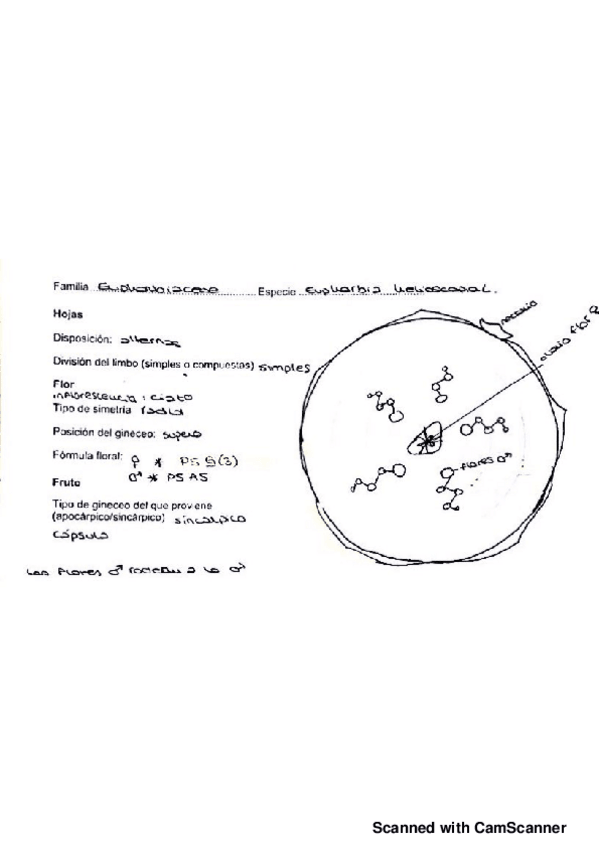 Familia Euphorbiaceae Especie Euphorbia helioscopia L.
Hojas
Disposición: alternas
División del limbo (simples o compuestas) simples
Flor
inflorescencia : ciato
Tipo de simetría radial
Posición del gineceo: supero
Fórmula floral: ♀ * P5 G(3)
♂ * P5 A5
Fruto
Tipo de gineceo del que proviene
(apocárpico/sincárpico) sincárpico
Cápsula
Las flores ♂ rodean a la
nectario
ovario flor ♀
flores ♂
Scanned with CamScanner